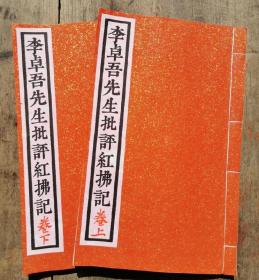 李卓吾先生批評紅拂記
卷上
李卓吾先生批評紅拂記
卷下